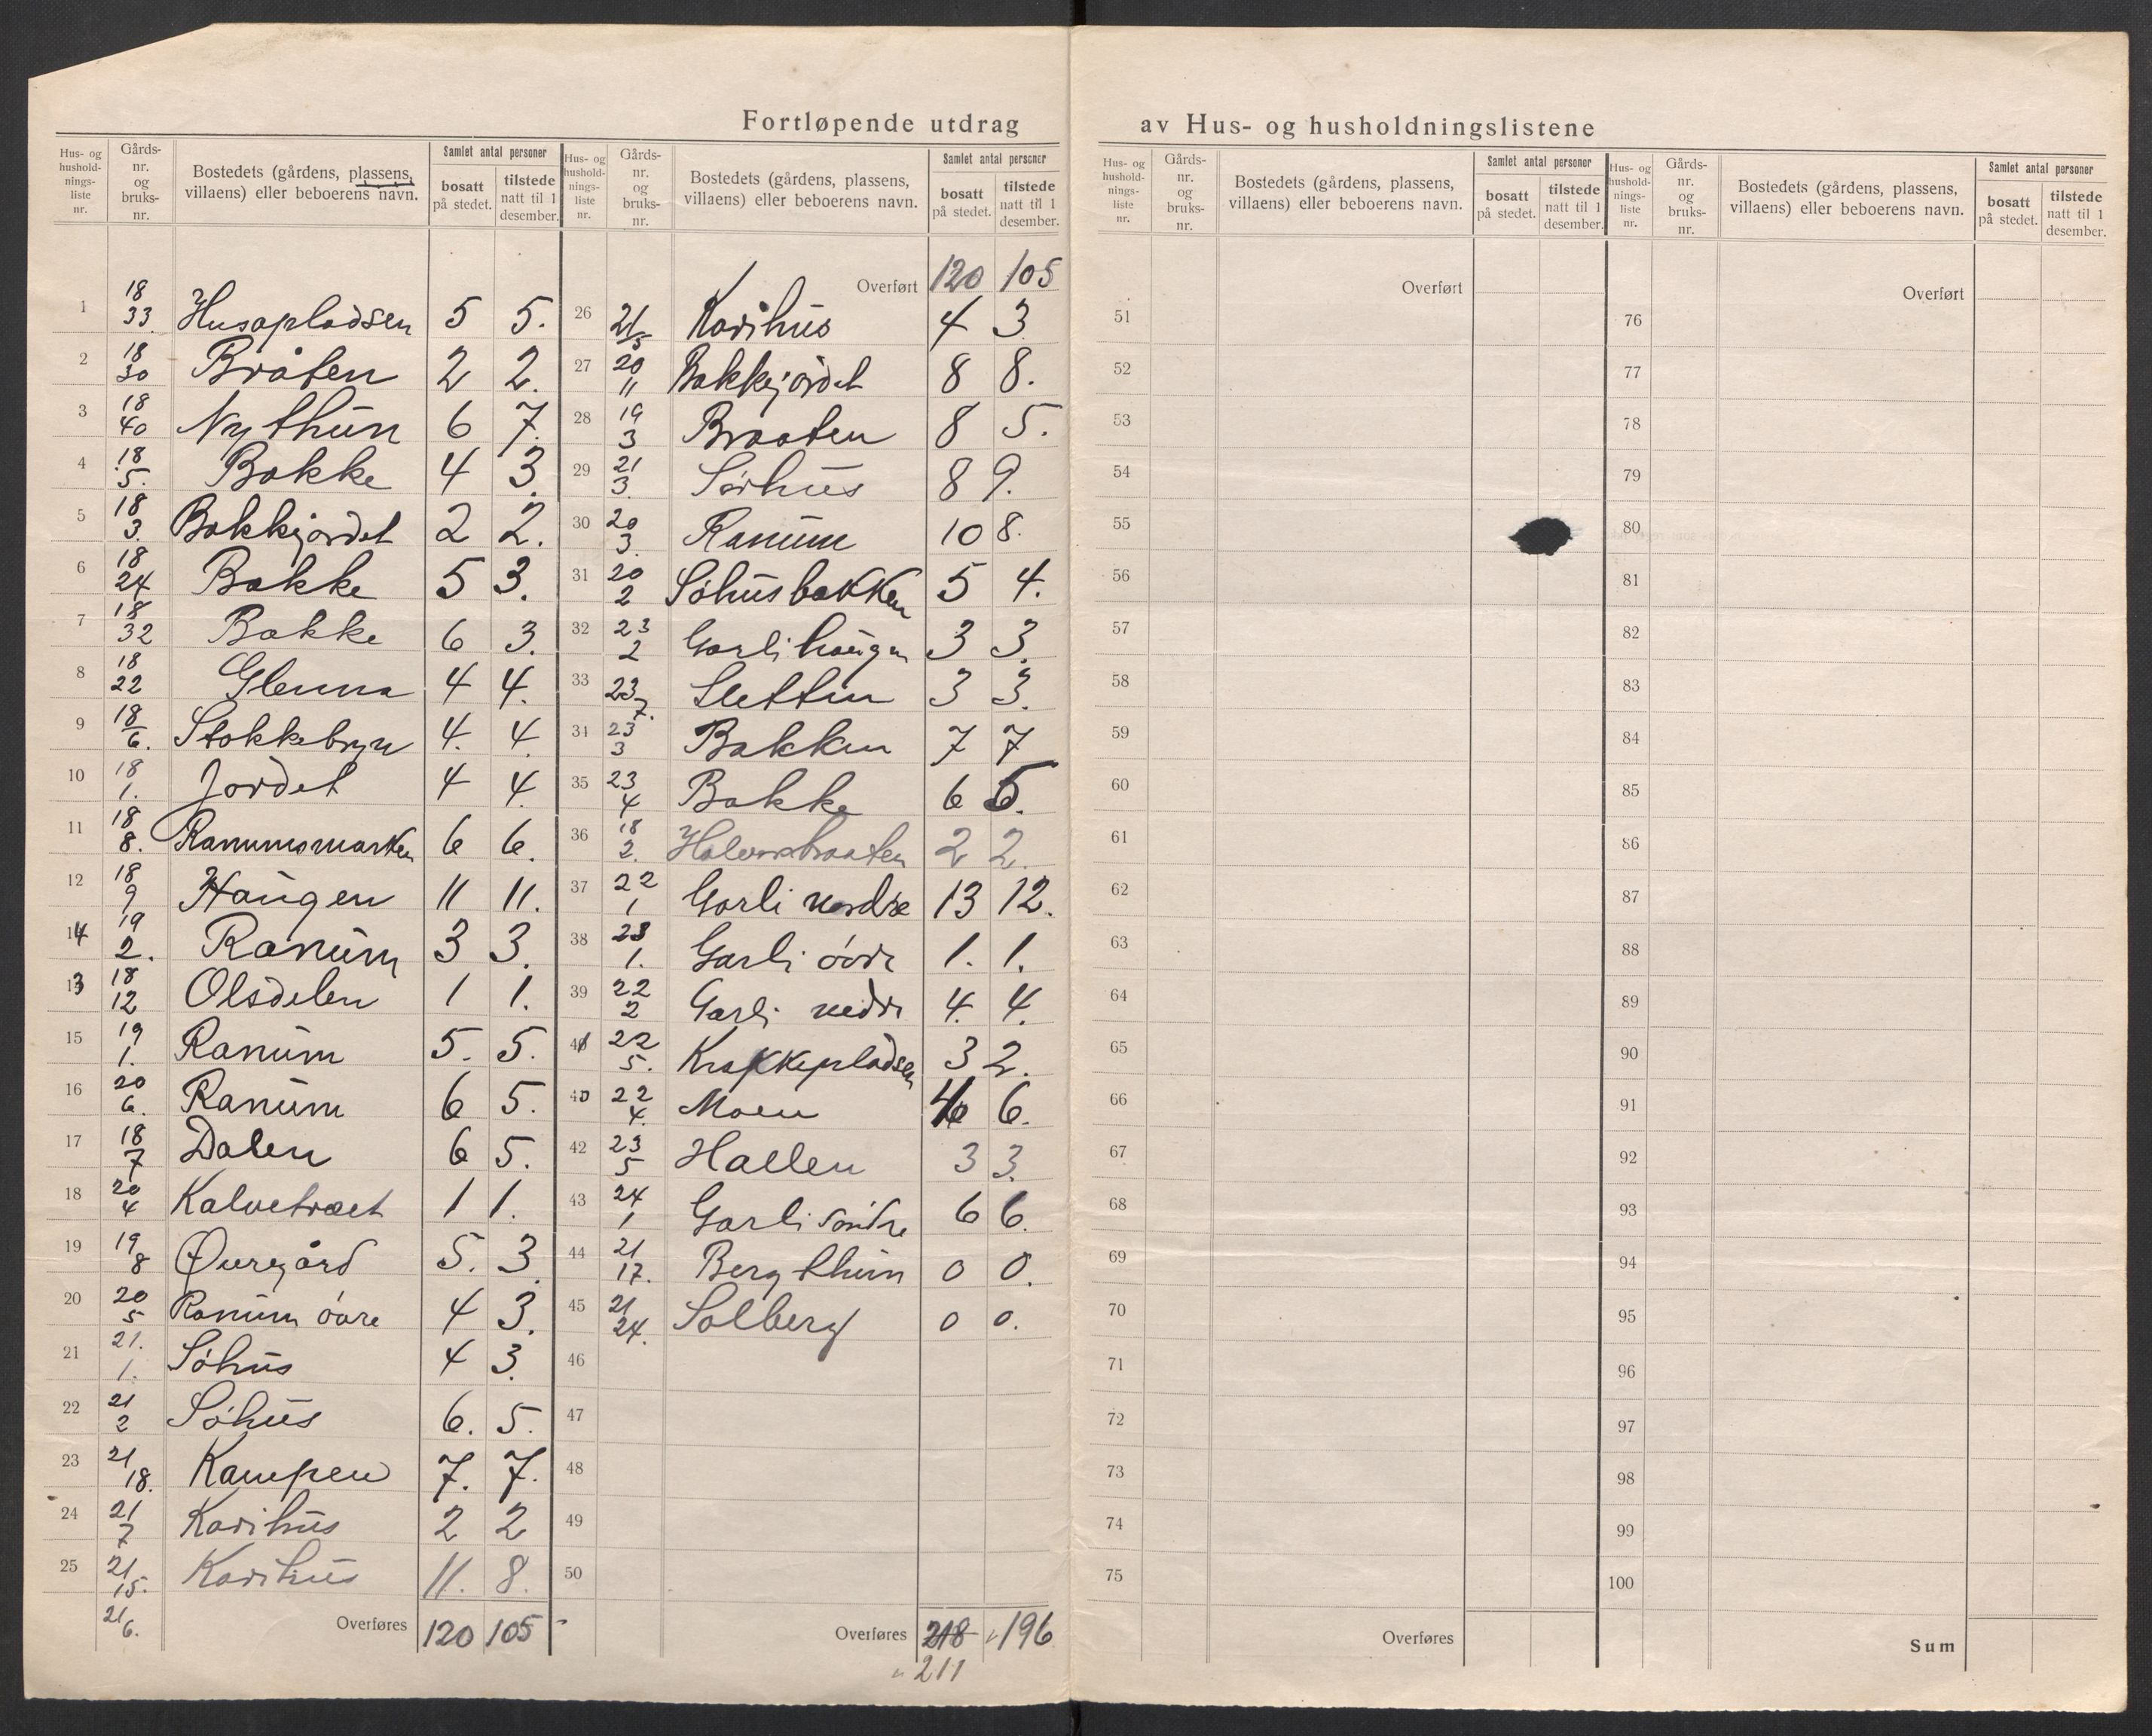 Fortløpende utdrag av Hus- og husholdningslistene
Hus- og hushold-nings-liste nr. Gårds-nr. og bruks-nr. Bostedets (gårdens, plassens, villaens) eller beboerens navn. Samlet antal personer bosatt på stedet. tilstede natt til 1 desember.
1 18/33. Husapladsen 5 5.
2 18/30 Bråten 2 2.
3 18/40 Nythun 6 7.
4 18/5. Bakke 4 3.
5 18/3. Bakkejordet 2 2.
6 18/24 Bakke 5 3.
7 18/32 Bakke 6 3.
8 18/22 Glenna 4 4.
9 18/6. Stokkebryn 4. 4.
10 18/1. Jordet 4 4.
11 18/8. Ranumsmarken 6 6.
12 18/9 Haugen 11 11.
14 19/2. Ranum 3 3.
13 18/12 Olsdelen 1 1.
15 19/1. Ranum 5. 5.
16 20/6. Ranum 6 5.
17 18/7 Dalen 6 5.
18 20/4 Kalvetræet 1 1.
19 19/8 Øuregård 5. 3.
20 20/5 Ranum óvre 4 3.
21 21./1. Sóhus 4 3.
22 21/2 Sóhus 6. 5.
23 21/18. Kampen 7. 7.
24 21/7 Karihus 2 2
25 21/15. Karihus 11. 8.
21/6.
Overføres 120 105
Hus- og hushold-nings-liste nr. Gårds-nr. og bruks-nr. Bostedets (gårdens, plassens, villaens) eller beboerens navn. Samlet antal personer bosatt på stedet. tilstede natt til 1 desember.
Overført 120 105
26 21/5 Karihus 4 3
27 20/11 Bakkejordet 8 8.
28 19/3 Braaten 8 5.
29 21/3. Sórhus 8 9.
30 20/3. Ranum 10 8.
31 20/2 Sóhusbakken 5 4.
32 23/2 Garlihaugen 3 3.
33 23/7. Sletten 3 3.
34 23/3 Bakken 7 7
35 23/4 Bakke 6 5.
36 18/2. Halvorsbraaten 2 2.
37 22/1 Garli nordre 13 12.
38 23/1. Garli óvre 1. 1.
39 22/2 Garli nedre 4. 4.
41 22/5. Krakkepladsen 3 2.
40 22/4. Moen 6 6.
42 23/5 Hallen 3 3.
43 24/1 Garli sóndre 6 6.
44 21/17. Bergthun 0 0.
45 21/24. Solberg 0 0.
46
47
48
49
50
Overføres 218 196
211
Hus- og hushold-nings-liste nr. Gårds-nr. og bruks-nr. Bostedets (gårdens, plassens, villaens) eller beboerens navn. Samlet antal personer bosatt på stedet. tilstede natt til 1 desember.
Overført
51
52
53
54
55
56
57
58
59
60
61
62
63
64
65
66
67
68
69
70
71
72
73
74
75
Overføres
Hus- og hushold-nings-liste nr. Gårds-nr. og bruks-nr. Bostedets (gårdens, plassens, villaens) eller beboerens navn. Samlet antal personer bosatt på stedet. tilstede natt til 1 desember.
Overført
76
77
78
79
80
81
82
83
84
85
86
87
88
89
90
91
92
93
94
95
96
97
98
99
100
Sum